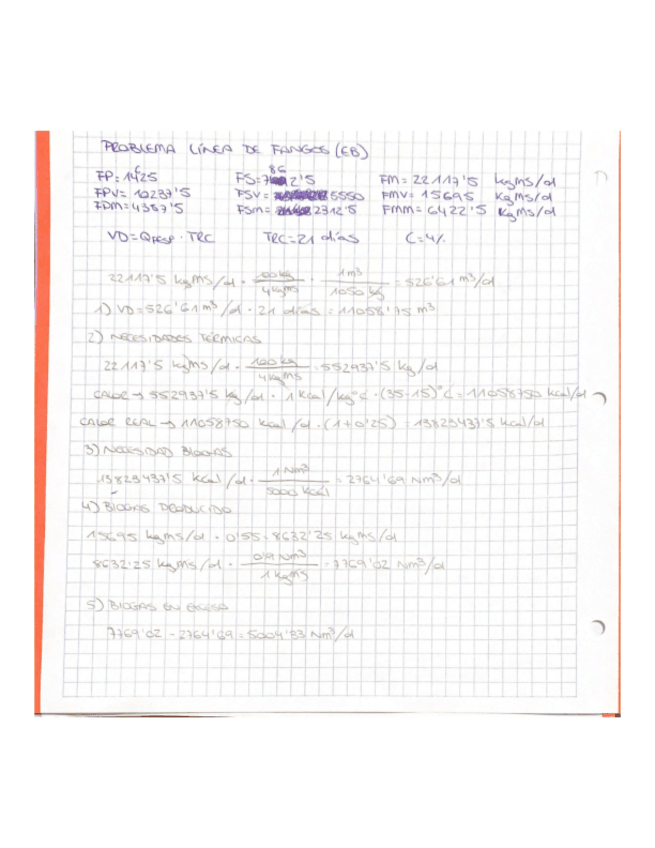 PROBLEMA LÍNEA DE FANGOS (EB)
FP=14625 FS=7862'5 FM=22117'5 kgms/d
FPV=10237'5 FSV=5550 FMV=15695 kgms/d
FDM=4387'5 FSM=2312'5 FMM=6422'5 kgms/d
VD=QFESP · TRC TRC=21 días C=4%
22117'5 kgMS/d · 100kg/4kgms · 1m³/1050 kg = 526'61 m³/d
1) VD=526'61 m³/d · 21 días = 11058'75 m³
2) NECESIDADES TÉRMICAS
22117'5 kgms/d · 100kg/4kgms = 552937'5 kg/d
CALOR → 552937'5 kg/d · 1 Kcal/kgºC · (35-15)ºC = 11058750 kcal/d
CALOR REAL → 11058750 kcal/d · (1+0'25) = 13823437'5 kcal/d
3) NECESIDAD BIOGAS
13823437'5 kcal/d · 1 Nm³/5000 kcal = 2764'69 Nm³/d
4) BIOGAS PRODUCIDO
15695 kgms/d · 0'55 = 8632'25 kgms/d
8632'25 kgms/d · 0'9 Nm³/1 kgms = 7769'02 Nm³/d
5) BIOGAS EN EXCESO
7769'02 - 2764'69 = 5004'33 Nm³/d